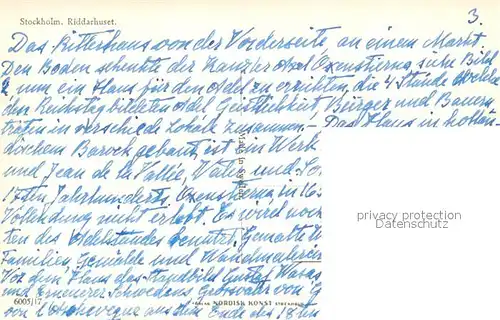 Stockholm. Riddarhuset.
3.
Das Ritterhaus von der Vorderseite, an einem Markt
Den Boden schenkte der Kanzler Axel Oxenstierna, siehe Bild
um ein Haus für den Adel zu errichten, die 4 Stände welche
den Reichstag bildeten Adel Geistlichkeit, Bürger und Bauern
traten in verschiedene Lokale zusammen. — Das Haus in hollän-
dischem Barock gebaut, ist ein Werk
von Jean de la Vallée, Vater und So
17ten Jahrhunderts. Oxenstierna in 16
Vollendung nicht erlebt. Es wird noch
ten des Adelstandes benützt. Gemalte
Familien Gemälde und Wandmalereien
Vor dem Haus das Standbild Gustav Wasas
und Erneuerer Schwedens Grossvater von
von l'Archeveque aus dem Ende des 18ten
privacy protection
watermark
6005/17
NORDISK KONST STOCKHOLM